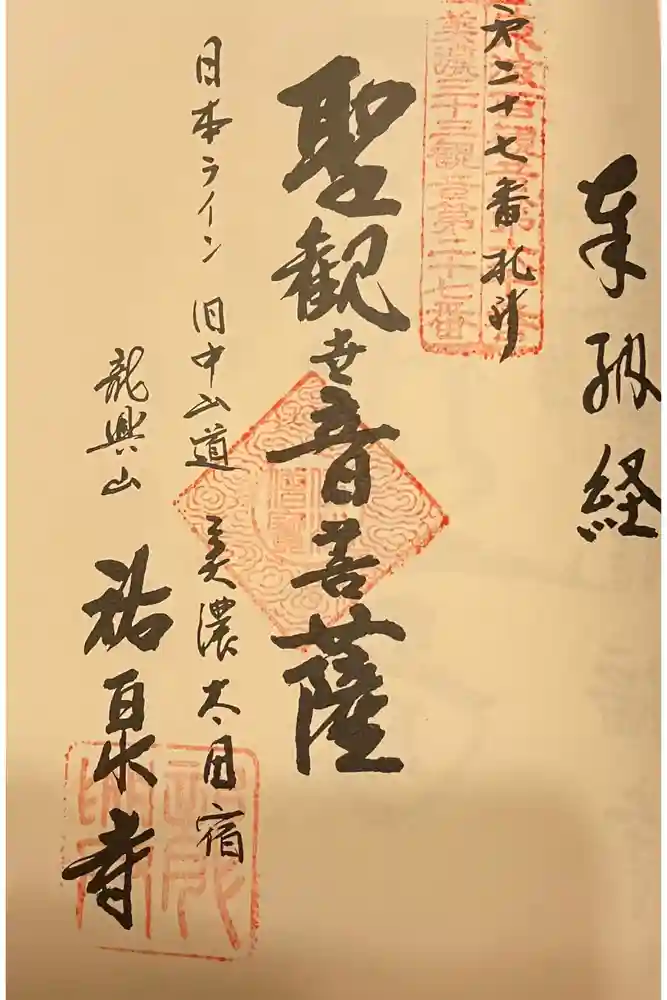 奉納経
第二十七番札所
美濃三十三観音第二十七番
聖観世音菩薩
日本ライン 旧中山道 美濃太田宿
龍興山 祐泉寺